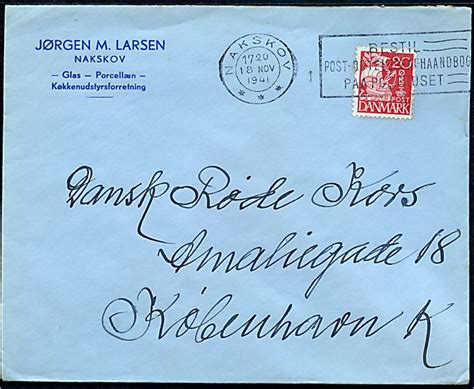 JØRGEN M. LARSEN
NAKSKOV
— Glas - Porcellæn -
Køkkenudstyrsforretning
NAKSKOV
1720
18 NOV
1941
BESTIL
POST-O HAANDBOG
PAA P USET
20
POST
DANMARK
Dansk Røde Kors
Amaliegade 18
København K